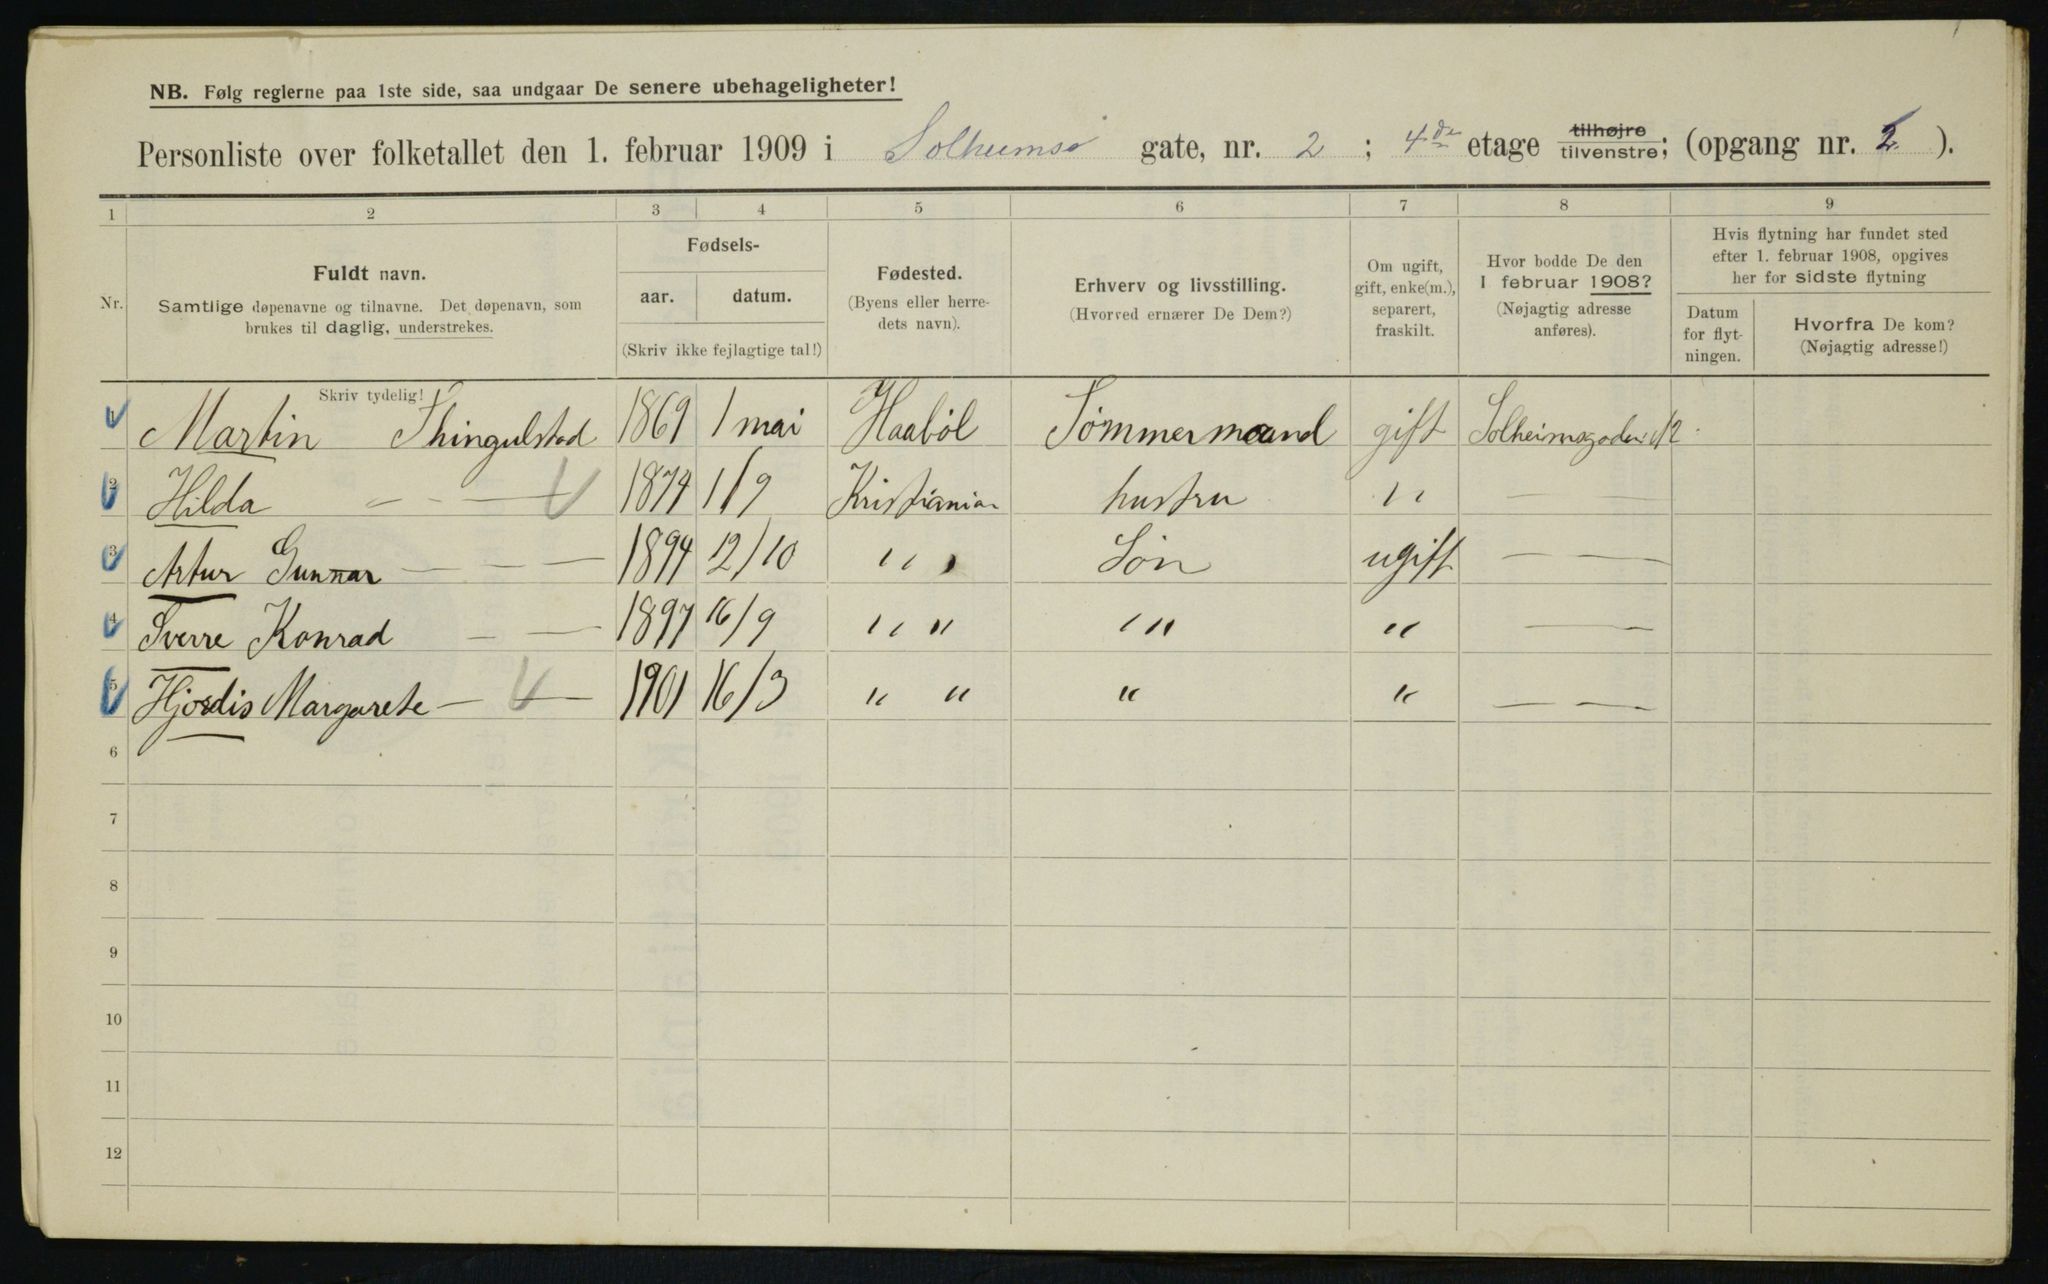 NB. Følg reglerne paa 1ste side, saa undgaar De senere ubehageligheter!
Personliste over folketallet den 1. februar 1909 i Solheims gate, nr. 2 ; 4de etage tilhøjre tilvenstre; (opgang nr. 2 ).
1 2 3 4 5 6 7 8 9
Nr.
Fuldt navn.
Samtlige døpenavne og tilnavne. Det døpenavn, som
brukes til daglig, understrekes.
Skriv tydelig!
Fødsels-
aar. datum.
(Skriv ikke fejlagtige tal!)
Fødested.
(Byens eller herre-
dets navn).
Erhverv og livsstilling.
(Hvorved ernærer De Dem?)
Om ugift,
gift, enke(m.),
separert,
fraskilt.
Hvor bodde De den
1 februar 1908?
(Nøjagtig adresse
anføres).
Hvis flytning har fundet sted
efter 1. februar 1908, opgives
her for sidste flytning
Datum
for flyt-
ningen.
Hvorfra De kom?
(Nøjagtig adresse!)
1 Martin Thingulstad 1869 1 mai Haabøl Tømmermand gift Solheimsgaden 2
2 Hilda — - — 1874 1/9 Kristiania hustru " — —
3 Artur Gunnar — — — 1894 12/10 " " Søn ugift — —
4 Sverre Konrad — — 1897 16/9 " " " " " —
5 Hjordis Margarete — — 1901 16/3 " " " " — —
6
7
8
9
10
11
12